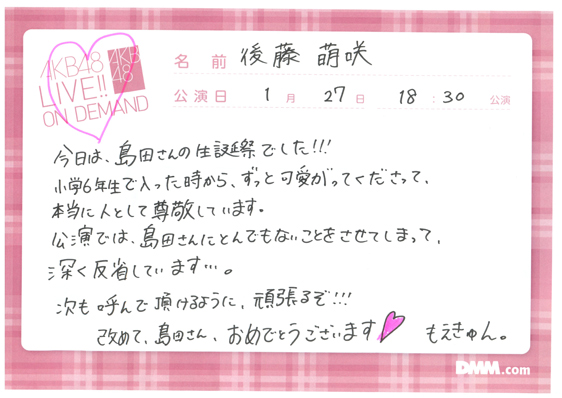 AKB48
LIVE!!
ON DEMAND
AKB
48
名前 後藤 萌咲
公演日 1月 27日 18:30 公演
今日は、島田さんの生誕祭でした!!!
小学6年生で入った時から、ずっと可愛がってくださって、
本当に人として尊敬しています。
公演では、島田さんにとんでもないことをさせてしまって、
深く反省しています…。
次も呼んで頂けるように、頑張るぞ!!!
改めて、島田さん、おめでとうございます
もえきゅん。
DMM.com